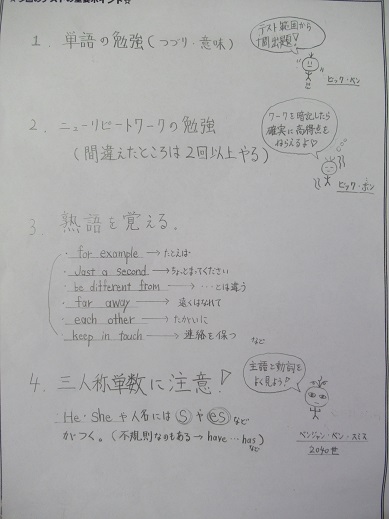 ☆今回のテストの重要ポイント☆
1. 単語の勉強(つづり・意味)
テスト範囲から
出題!
ビック・ベン
2. ニューリピートワークの勉強
(間違えたところは2回以上やる)
ワークを暗記したら
確実に高得点を
ねらえるよ♡
ビック・ボン
3. 熟語を覚える。
・for example → たとえば
・Just a second → ちょっとまってください
・be different from → …とは違う
・far away → 遠くはなれて
・each other → たがいに
・keep in touch → 連絡を保つ
など
4. 三人称単数に注意!
主語と動詞を
よく見よう♡
He・Sheや人名には s や es など
がつく。(不規則なのもある→have…has)
など
ベンジャン・ベン・スミス
2040世